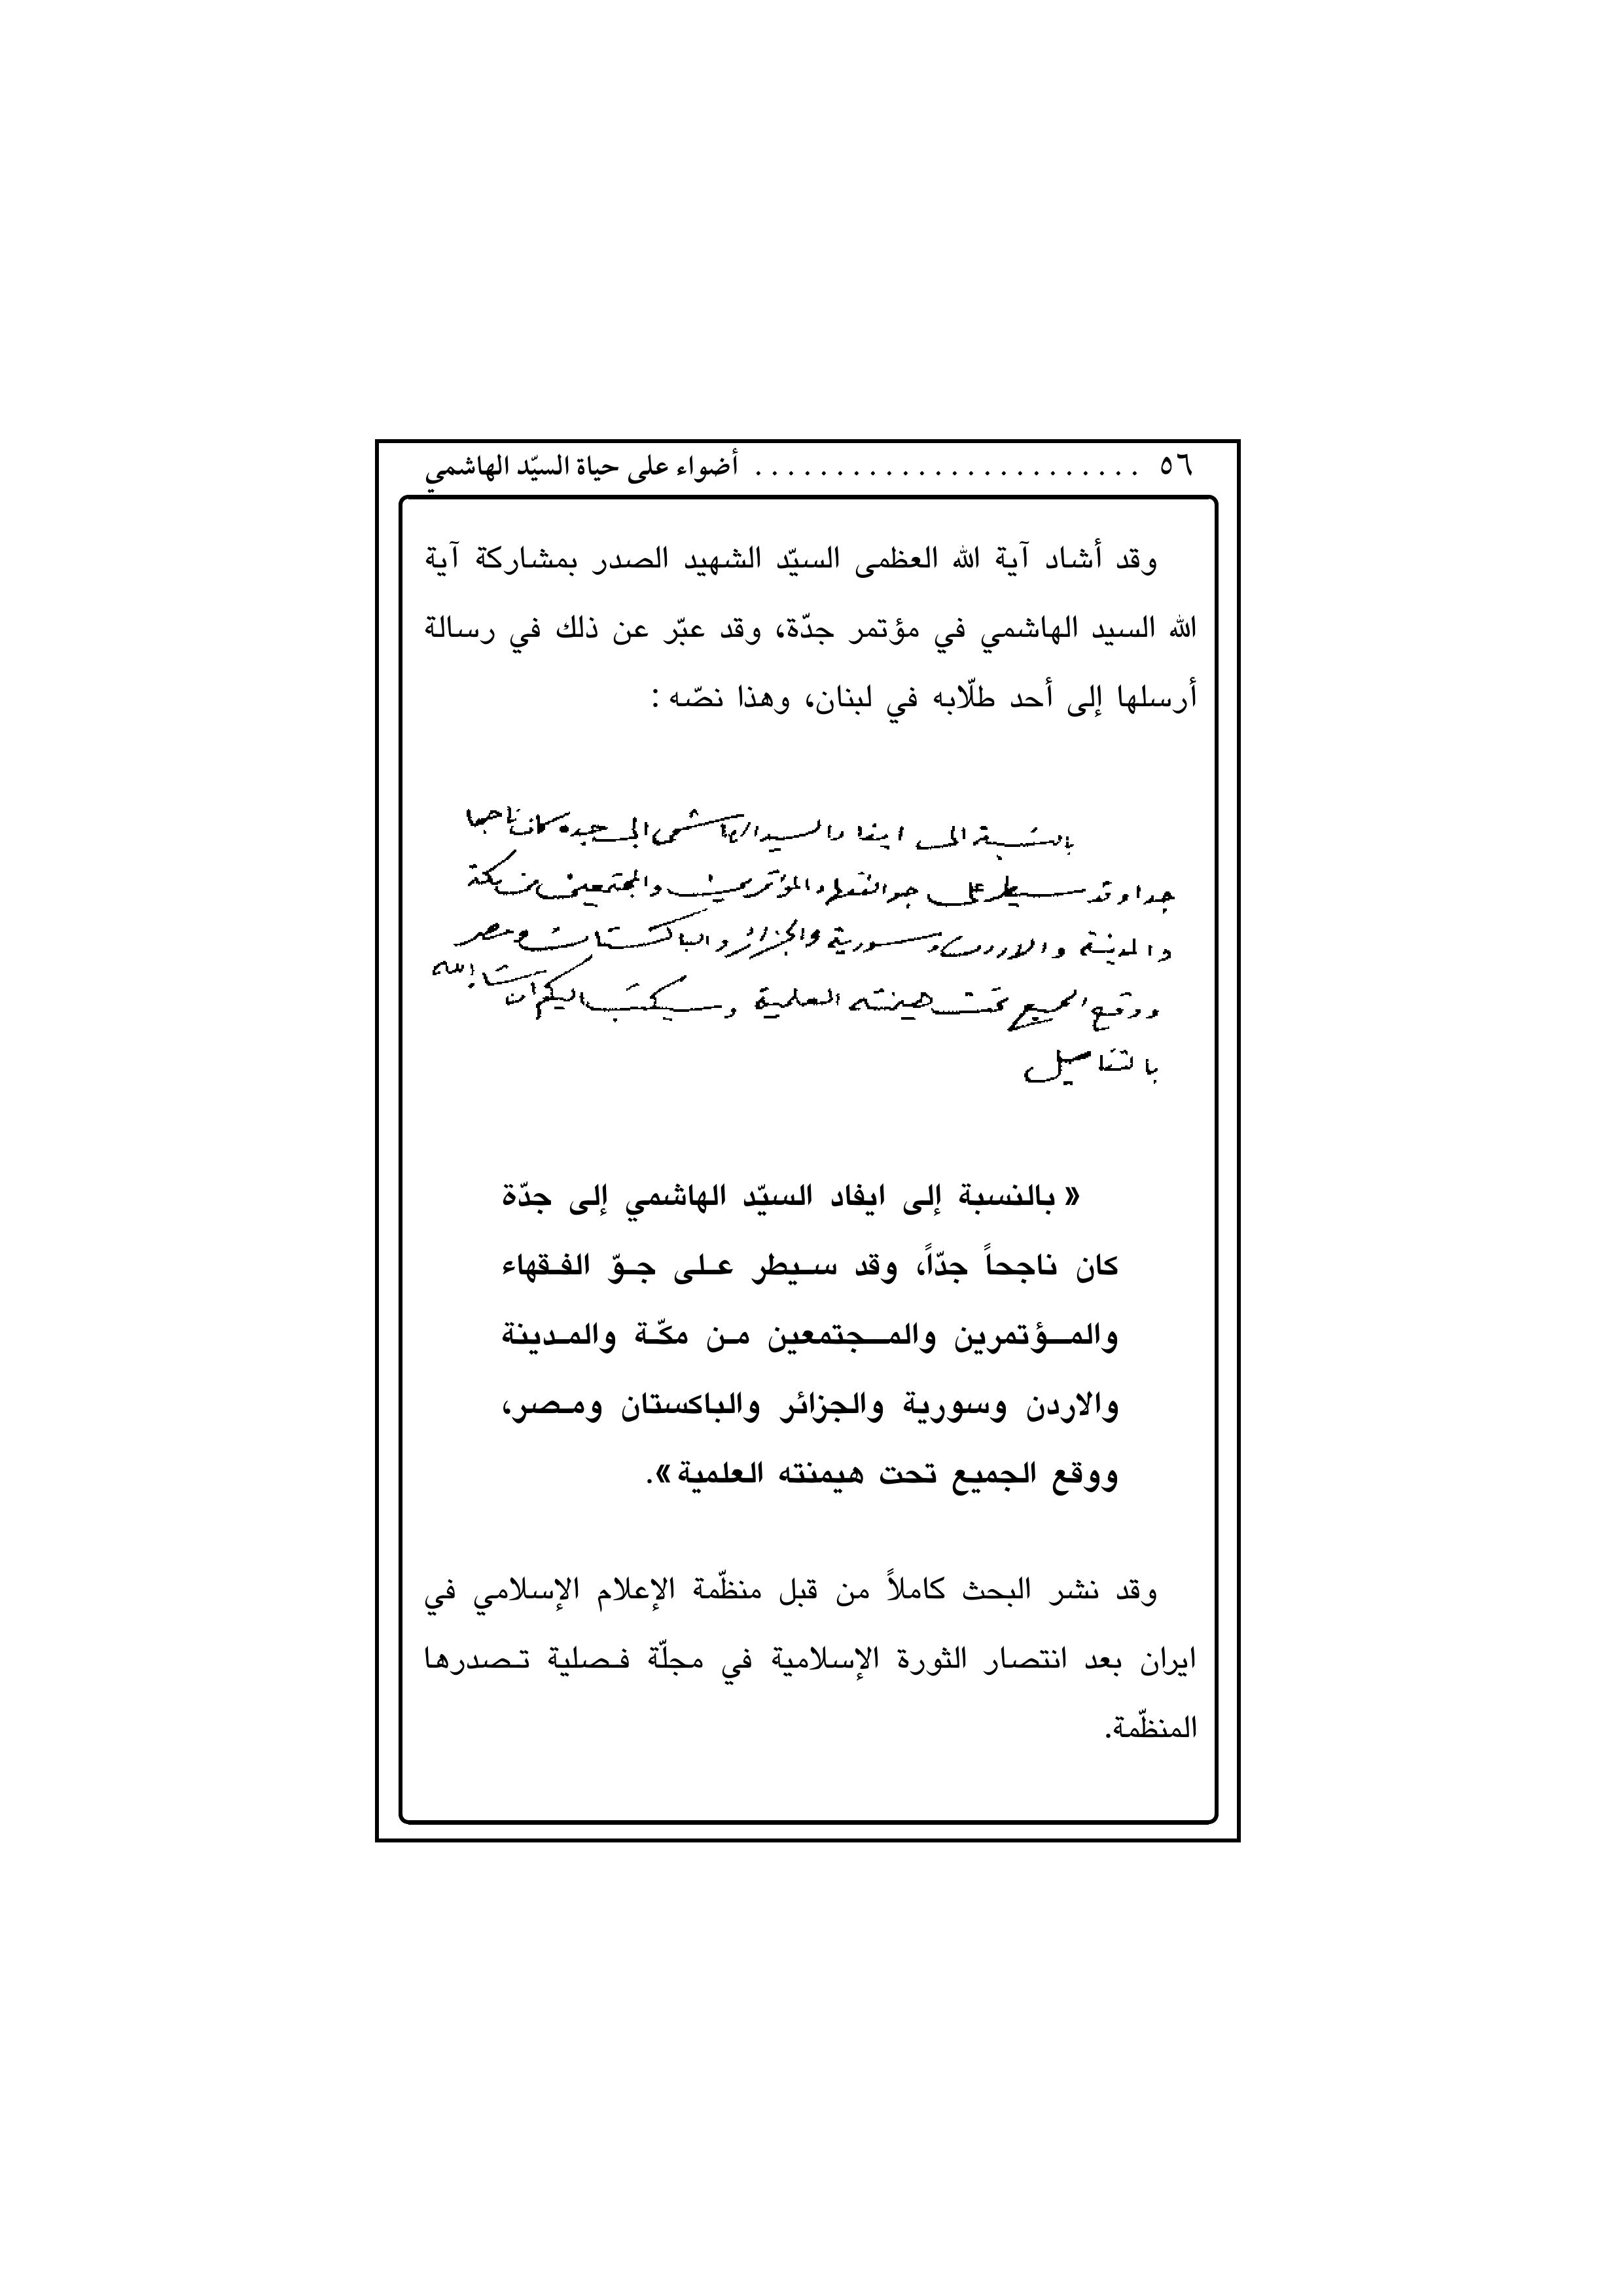 ٥٦ . . . . . . . . . . . . . . . . . . . . . . . . أضواء على حياة السيّد الهاشمي
وقد أشاد آية الله العظمى السيّد الشهيد الصدر بمشاركة آية
الله السيد الهاشمي في مؤتمر جدّة، وقد عبّر عن ذلك في رسالة
أرسلها إلى أحد طلّابه في لبنان، وهذا نصّه :
بالنسبة الى ايفاد السيد الهاشمي الى جده كان ناجحا
جدا وقد سيطر على جو الفقهاء والمؤتمرين والمجتمعين من مكة
والمدينة والاردن وسورية والجزائر والباكستان ومصر
ووقع الجميع تحت هيمنته العلمية وسيكتب اليكم ان شاء الله
بالتفاصيل
« بالنسبة إلى ايفاد السيّد الهاشمي إلى جدّة
كان ناجحاً جدّاً، وقد سيطر على جوّ الفقهاء
والمؤتمرين والمجتمعين من مكّة والمدينة
والاردن وسورية والجزائر والباكستان ومصر،
ووقع الجميع تحت هيمنته العلمية ».
وقد نشر البحث كاملاً من قبل منظّمة الإعلام الإسلامي في
ايران بعد انتصار الثورة الإسلامية في مجلّة فصلية تصدرها
المنظّمة.